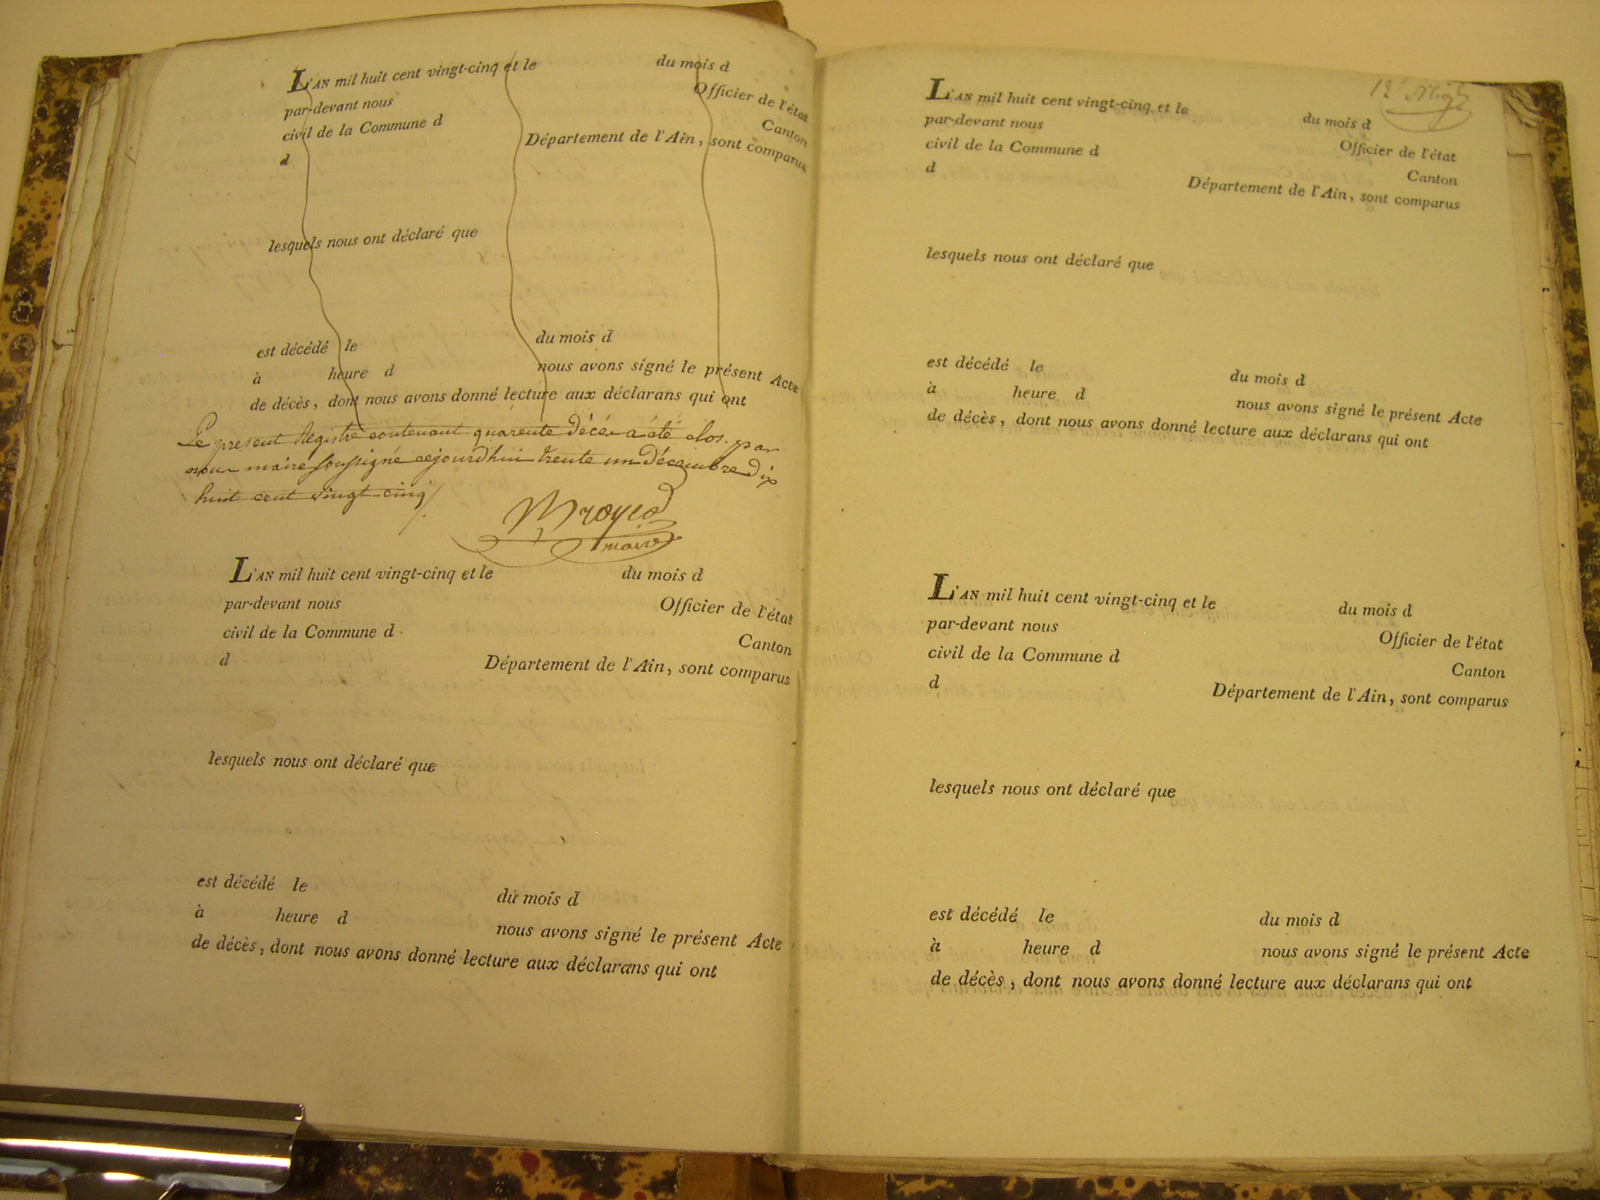 L'AN mil huit cent vingt-cinq et le du mois d
par-devant nous Officier de l'état
civil de la Commune d Canton
d Département de l'Ain, sont comparus
lesquels nous ont déclaré que
est décédé le du mois d
à heure d nous avons signé le présent Acte
de décès, dont nous avons donné lecture aux déclarans qui ont
Le present Registre contenant quarente décès a été clos par
nous maire soussigné cejourd'hui trente un décembre dix
huit cent vingt cinq
maire
L'AN mil huit cent vingt-cinq et le du mois d
par-devant nous Officier de l'état
civil de la Commune d Canton
d Département de l'Ain, sont comparus
lesquels nous ont déclaré que
est décédé le du mois d
à heure d nous avons signé le présent Acte
de décès, dont nous avons donné lecture aux déclarans qui ont
L'AN mil huit cent vingt-cinq et le du mois d
par-devant nous Officier de l'état
civil de la Commune d Canton
d Département de l'Ain, sont comparus
lesquels nous ont déclaré que
est décédé le du mois d
à heure d nous avons signé le présent Acte
de décès, dont nous avons donné lecture aux déclarans qui ont
L'AN mil huit cent vingt-cinq et le du mois d
par-devant nous Officier de l'état
civil de la Commune d Canton
d Département de l'Ain, sont comparus
lesquels nous ont déclaré que
est décédé le du mois d
à heure d nous avons signé le présent Acte
de décès, dont nous avons donné lecture aux déclarans qui ont